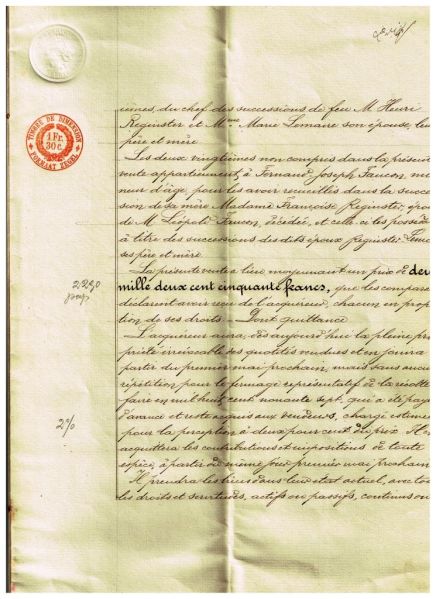 TIMBRE DE DIMENSION
1 Fr.
30 c.
FORMAAT ZEGEL
ièmes, du chef des successions de feu M Henri
Reginster et Mme Marie Lemaire son épouse, leu
père et mère
Les deux vingtièmes non compris dans la présent
vente appartiennent, à Fernand Joseph Faucon, mi
neur d'âge, pour les avoir recueillis dans la succes
sion de sa mère Madame Françoise Reginster, épou
de M. Léopold Faucon, décédée, et celle-ci les posséda
à titre des successions des dits époux Reginster Lema
ses père et mère
La présente vente a lieu moyennant un prix de deux
2250
mille deux cent cinquante francs, que les compara
déclarent avoir reçu de l'acquéreur, chacun en propor
tion de ses droits. Dont quittance
L'acquéreur aura, dès aujourd'hui la pleine pro
priété irrévocable des quotités vendues et en jouira
partir du premier mai prochain, mais sans aucu
répétition pour le fermage représentatif de la récolte
faire en mil huit cent nonante sept, qui a été payé
d'avance et reste acquis aux vendeurs, charge estimée
2%
pour la perception à deux pour cent du prix. Il en
acquittera les contributions et impositions de toute
espèce, à partir du même jour premier mai prochain
Il prendra les biens dans leur état actuel, avec tou
les droits et servitudes, actifs ou passifs, continus ou